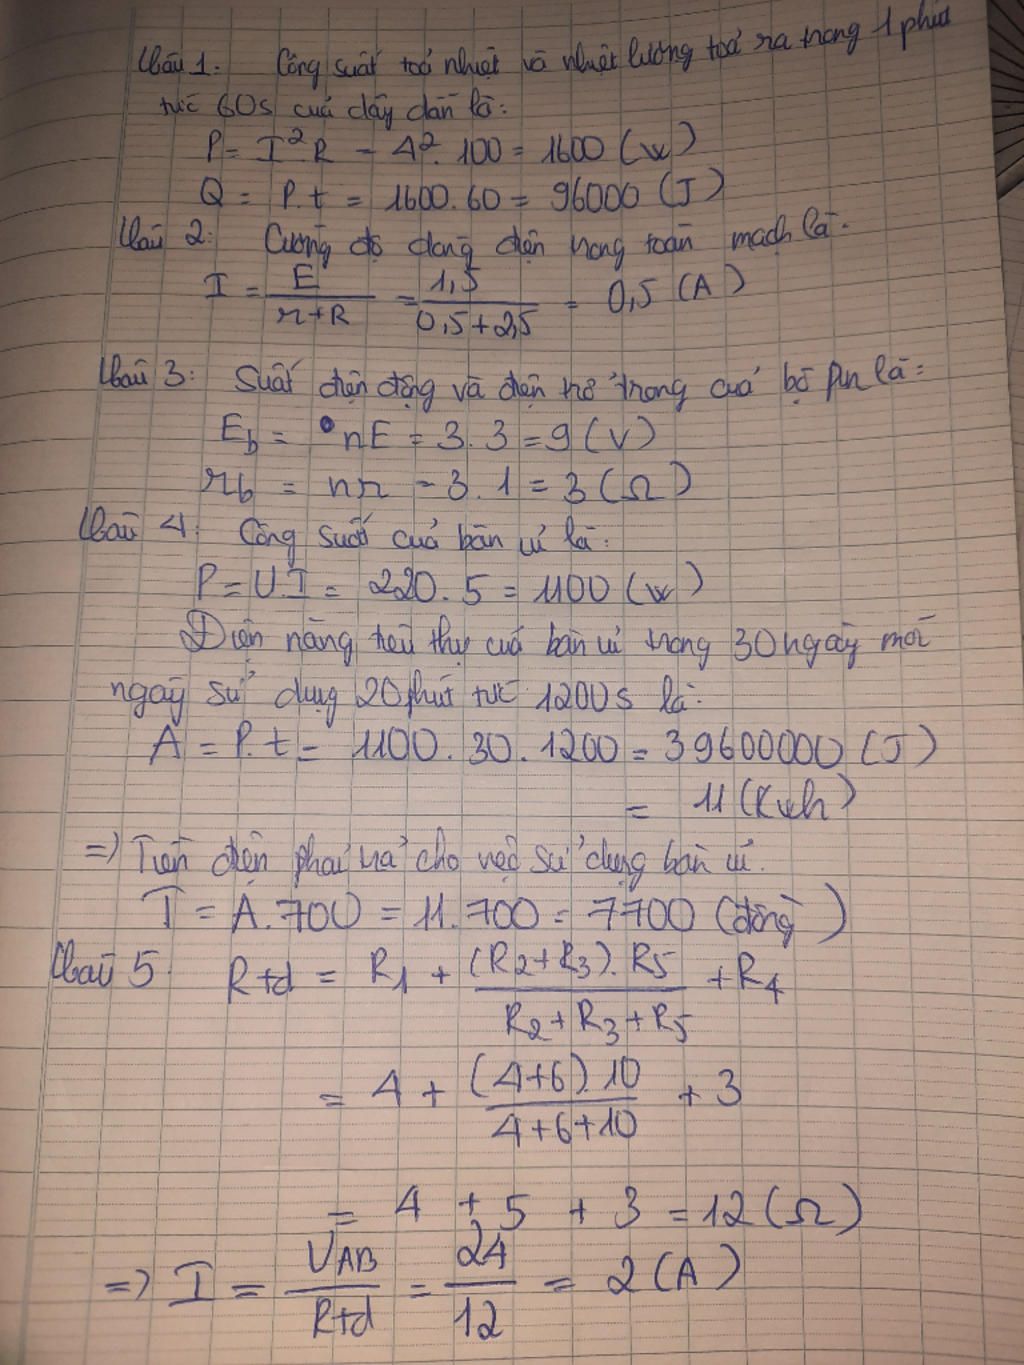 Câu 1: Công suất toả nhiệt và nhiệt lượng toả ra trong 1 phút
tức 60s của dây dẫn là:
P = I².R = 4².100 = 1600 (W)
Q = P.t = 1600.60 = 96000 (J)
Câu 2: Cường độ dòng điện trong toàn mạch là:
I = E / (r+R) = 1,5 / (0,5+2,5) = 0,5 (A)
Câu 3: Suất điện động và điện trở trong của bộ pin là:
Eb = nE = 3.3 = 9 (V)
rb = nr = 3.1 = 3 (Ω)
Câu 4: Công suất của bàn ủi là:
P = U.I = 220.5 = 1100 (W)
Điện năng tiêu thụ của bàn ủi trong 30 ngày mỗi
ngày sử dụng 20 phút tức 1200s là:
A = P.t = 1100.30.1200 = 39600000 (J)
= 11 (Kwh)
=> Tiền điện phải trả cho việc sử dụng bàn ủi.
T = A.700 = 11.700 = 7700 (đồng)
Câu 5 Rtđ = R1 + (R2+R3).R5 / (R2+R3+R5) + R4
= 4 + (4+6).10 / (4+6+10) + 3
= 4 + 5 + 3 = 12 (Ω)
=> I = UAB / Rtđ = 24 / 12 = 2 (A)